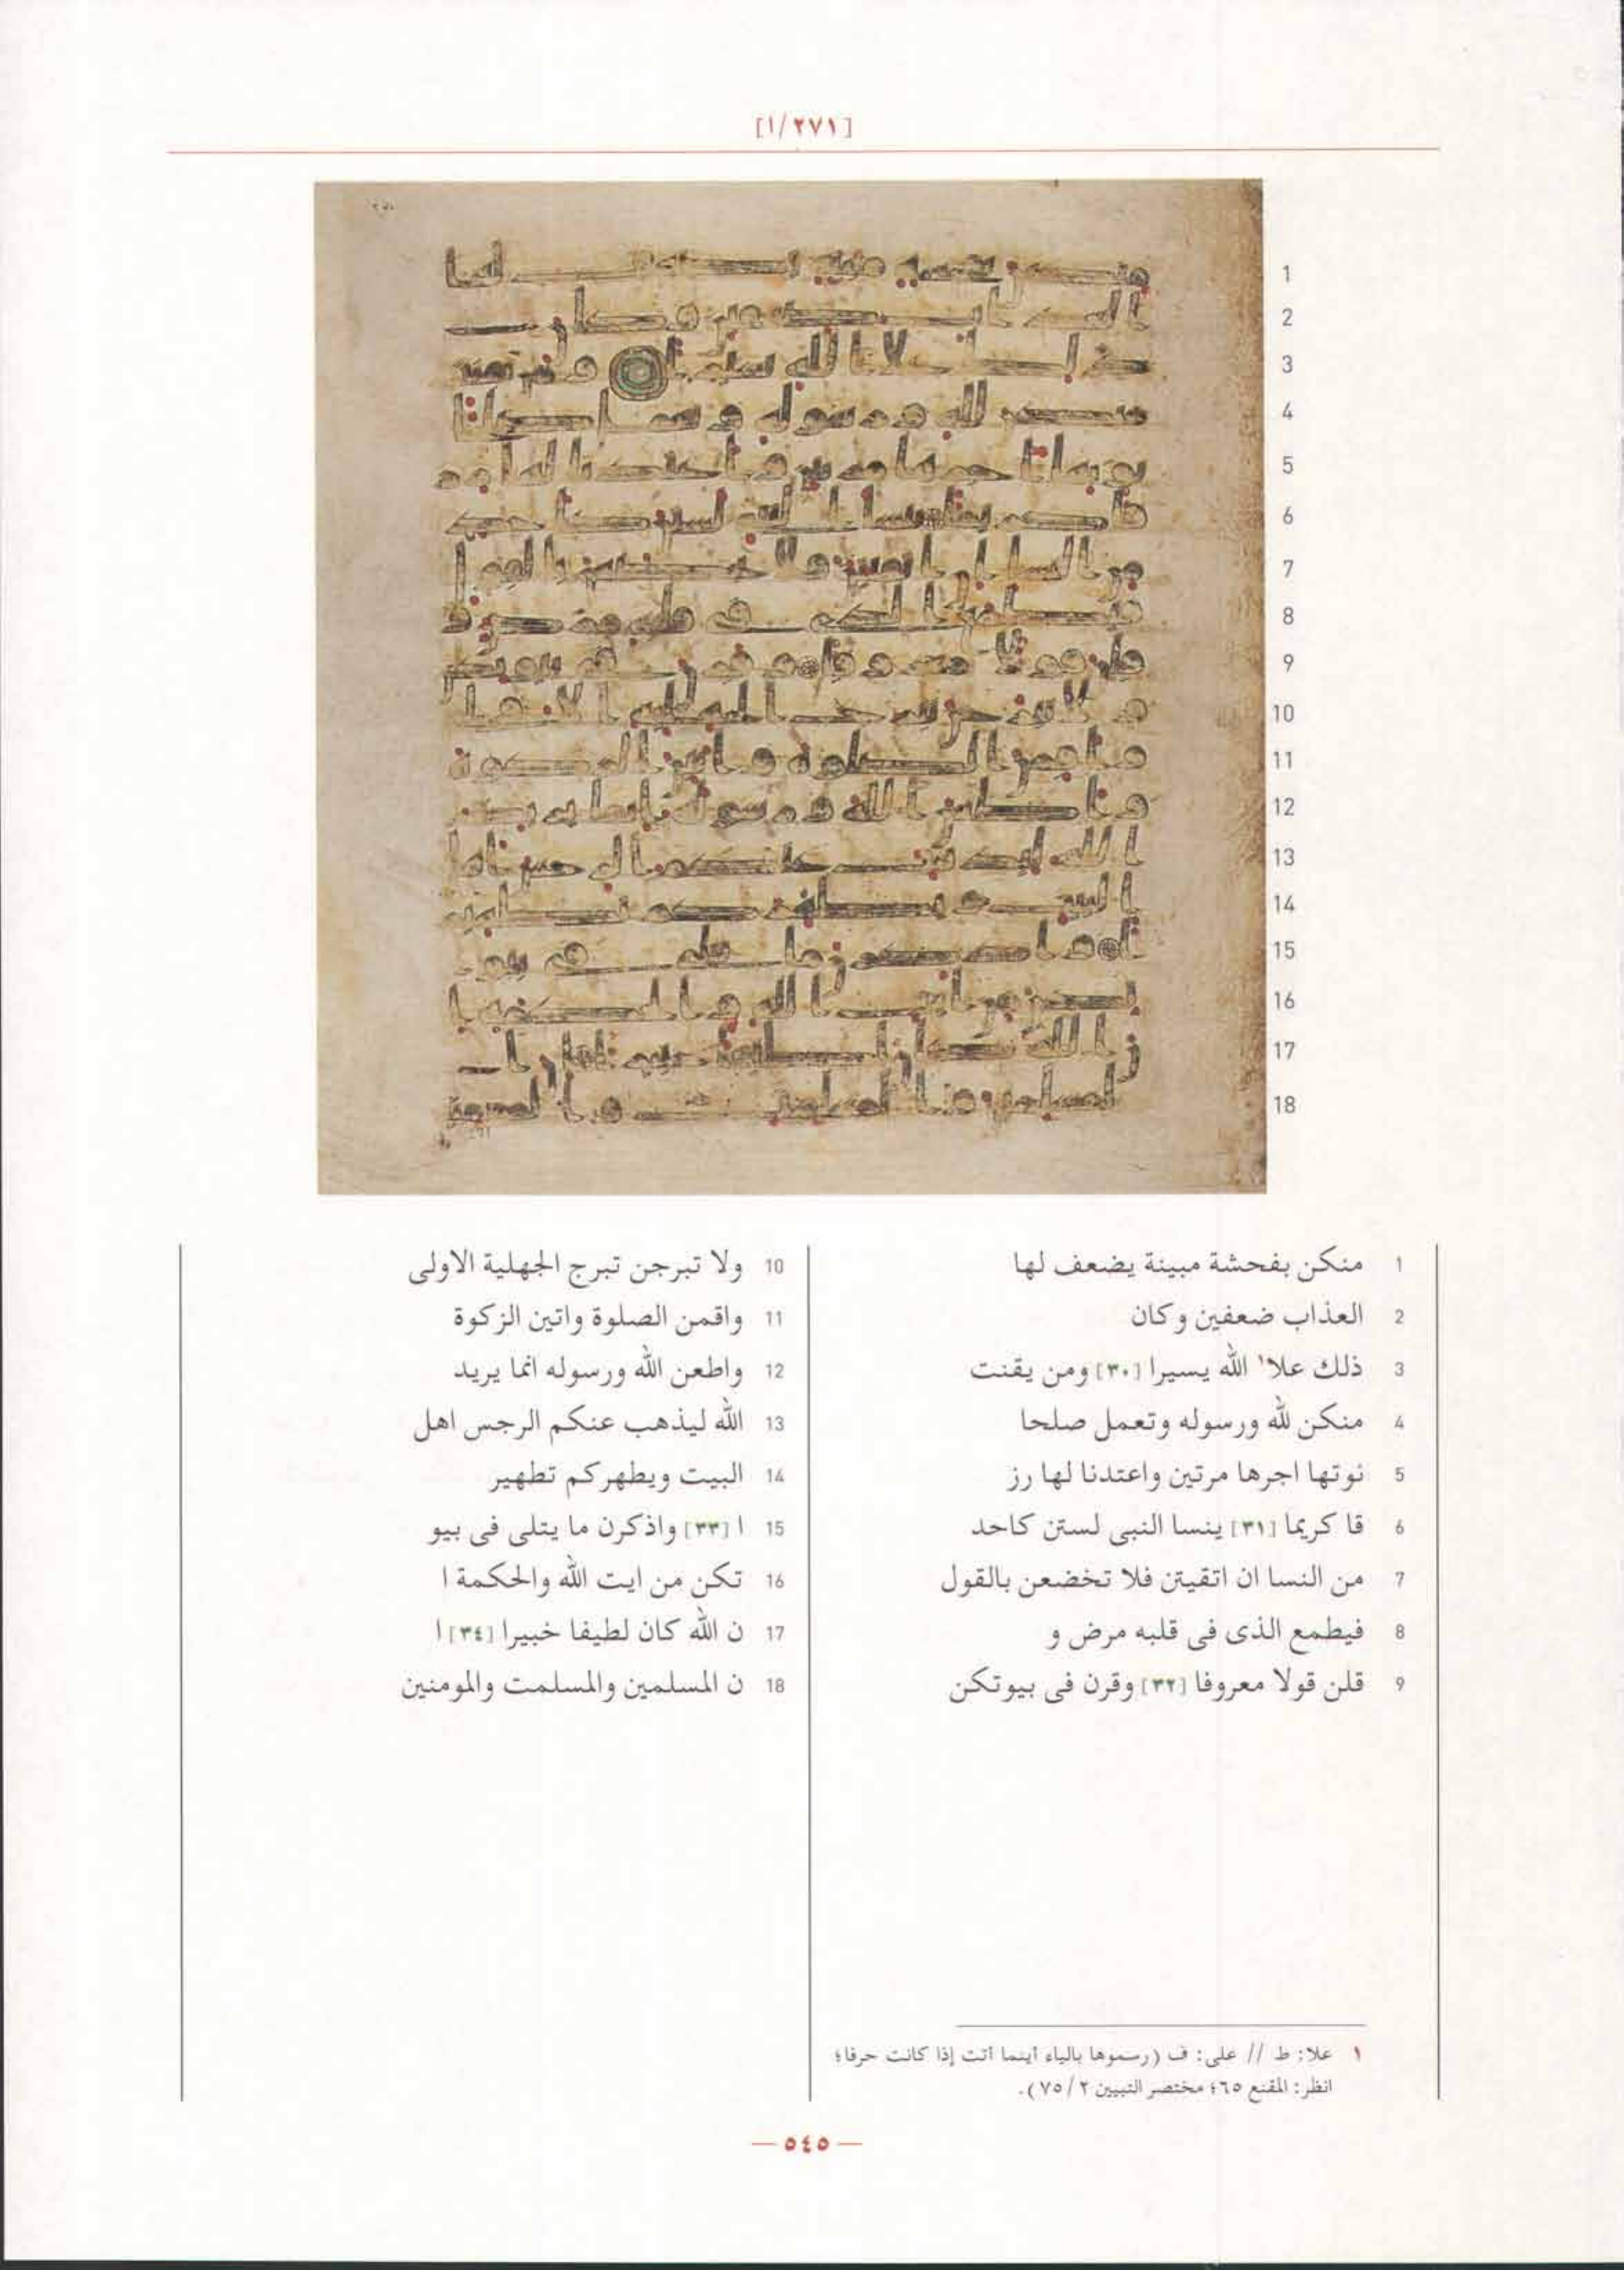 [١/٢٧١]
1 منكن بفحشة مبينة يضعف لها
2 العذاب ضعفين وكان
3 ذلك علا١ الله يسيرا [٣٠] ومن يقنت
4 منكن لله ورسوله وتعمل صلحا
5 نوتها اجرها مرتين واعتدنا لها رز
6 قا كريما [٣١] ينسا النبى لستن كاحد
7 من النسا ان اتقيتن فلا تخضعن بالقول
8 فيطمع الذى فى قلبه مرض و
9 قلن قولا معروفا [٣٢] وقرن فى بيوتكن
10 ولا تبرجن تبرج الجهلية الاولى
11 واقمن الصلوة واتين الزكوة
12 واطعن الله ورسوله انما يريد
13 الله ليذهب عنكم الرجس اهل
14 البيت ويطهركم تطهير
15 ا [٣٣] واذكرن ما يتلى فى بيو
16 تكن من ايت الله والحكمة ا
17 ن الله كان لطيفا خبيرا [٣٤] ا
18 ن المسلمين والمسلمت والمومنين
١ علا: ط // على: ف (رسموها بالياء أينما أتت إذا كانت حرفا؛
انظر: المقنع ٦٥؛ مختصر التبيين ٢/ ٧٥).
— ٥٤٥ —